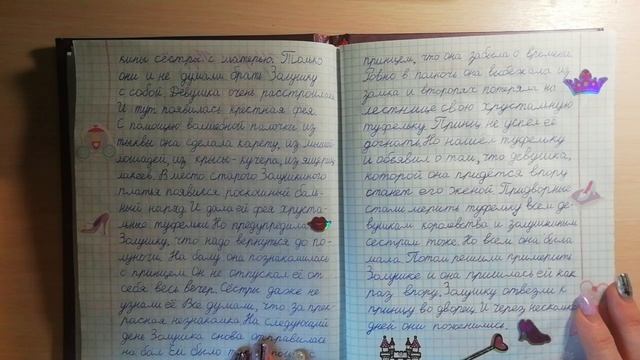 кины сестры с матерью. Только
они и не думали брать Золушку
с собой. Девушка очень расстроилась
И тут появилась крестная фея.
С помощью волшебной палочки из
тыквы она сделала карету, из мышей
лошадей, из крысы - кучера, из ящериц
лакеев. Вместо старого Золушкиного
платья появился роскошный баль-
ный наряд. И дала ей фея хруста-
льные туфельки. Но предупредила
Золушку, что надо вернуться до по-
луночи. На балу она познакомилась
с принцем. Он не отпускал её от
себя весь вечер. Сестры даже не
узнали её. Все думали, что за прек-
расная незнакомка. На следующий
день Золушка снова отправилась
на бал. Ей было
принцем, что она забыла о времени.
Ровно в полночь она выбежала из
замка и второпях потеряла на
лестнице свою хрустальную
туфельку. Принц не успел её
догнать. Но нашел туфельку
и объявил о том, что девушка,
которой она придется впору
станет его женой. Придворные
стали мерить туфельку всем де-
вушкам королевства и золушкиным
сестрам тоже. Но всем она была
мала. Потом решили примерить
Золушке и она пришлась ей как
раз впору. Золушку отвезли к
принцу во дворец. И через несколько
дней они поженились.